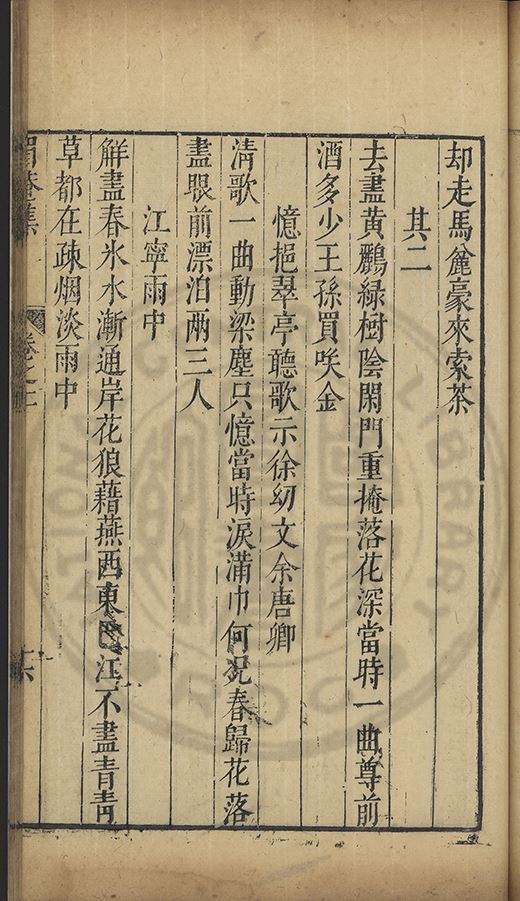 却走馬麄豪來索茶
其二
去盡黃鸝緑樹陰閑門重掩落花深當時一曲尊前
酒多少王孫買咲金
憶挹翠亭聽歌示徐幼文余唐卿
清歌一曲動梁塵只憶當時淚滿巾何况春歸花落
盡眼前漂泊兩三人
江寧雨中
解盡春氷水漸通岸花狼藉燕西東江不盡青青
草都在疎烟淡雨中
眉菴集
卷之